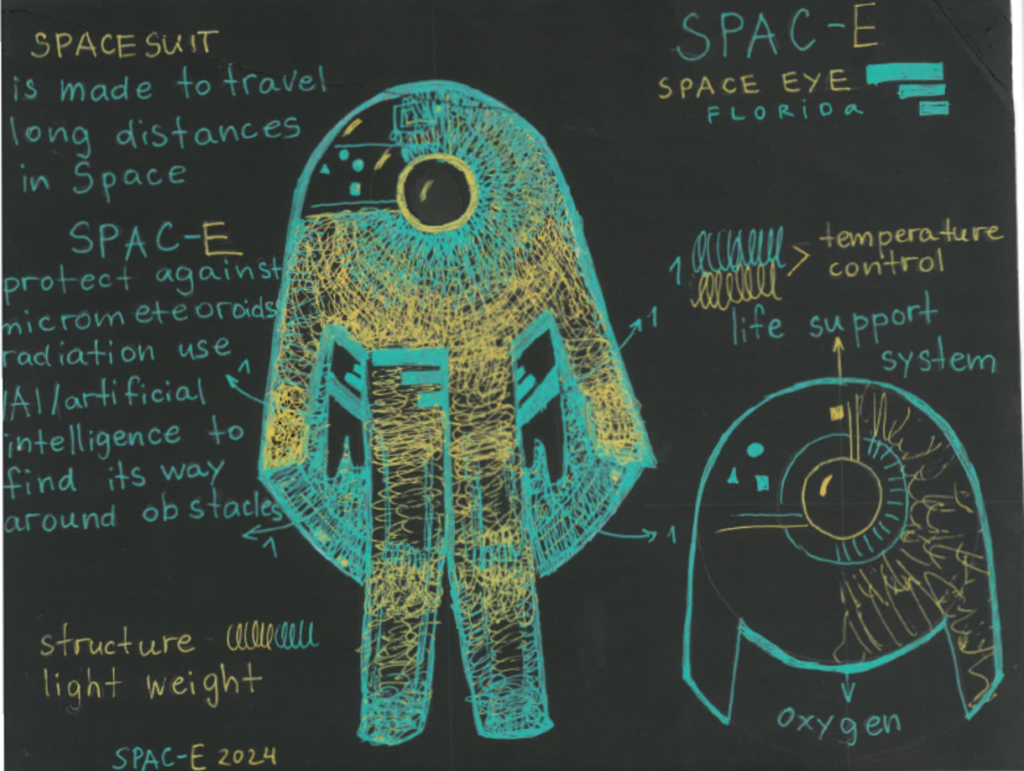 SPACESUIT
is made to travel
long distances
in Space
SPAC-E
protect against
micrometeoroids
radiation use
/AI/artificial
intelligence to
find its way
around obstacles
1
1
1
1
structure
light weight
SPAC-E 2024
SPAC-E
SPACE EYE
FLORiDa
1
temperature
control
life support
system
oxygen